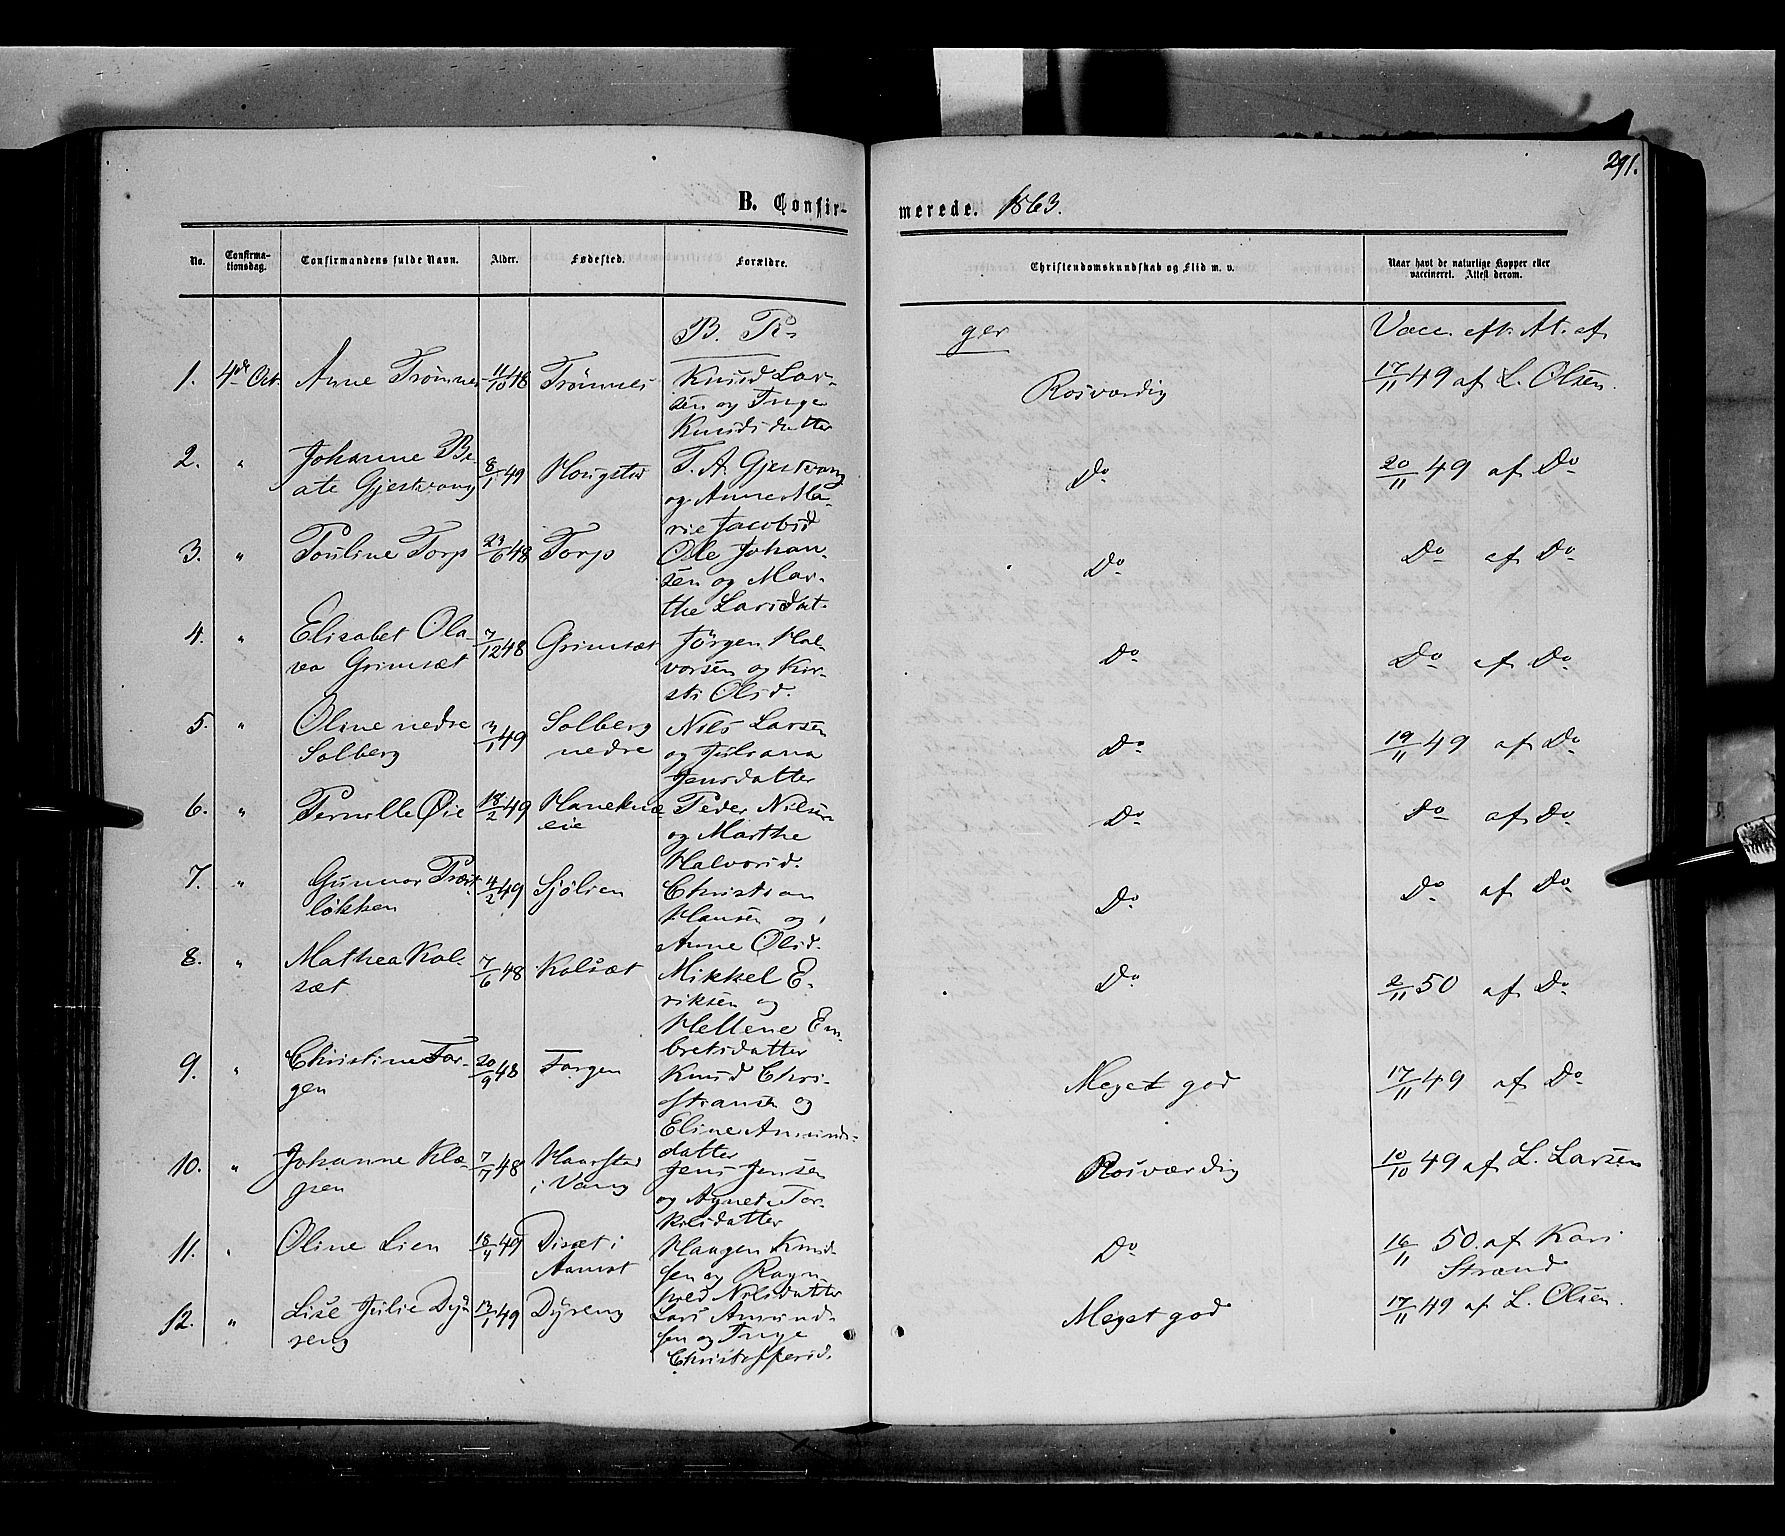 291.
B. Confir-
merede. 1863.
No.
Confirma-
tionsdag.
Confirmandens fulde Navn.
Alder.
Fødested.
Forældre.
Christendomskundskab og Flid m. v.
Naar havt de naturlige Kopper eller
vaccineret. Attest derom.
B. Pi-
ger
Vacc. eft. At. af
1. 4de Oct. Anne Trømnes 11/10 48 Trømnes Knud Lar-
sen og Inge
Knudsdatter
Rosværdig 17/11 49 af L. Olsen.
2. " Johanne Be-
ate Gjestvang 8/1 49 Hougstad T. A. Gjestvang
og Anne Ma-
rie Jacobsd
Do 20/11 49 af Do
3. " Pouline Torp 23/6 48 Torp Ole Johan-
sen og Mar-
the Larsdat.
Do Do af Do
4. " Elisabet Ola-
va Grimsæt 7/12 48 Grimsæt Jørgen Hal-
vorsen og Kir-
sti Olsd.
Do Do af Do
5. " Oline nedre
Solberg 3/1 49 Solberg
nedre Nils Larsen
og Juliana
Jensdatter
Do 19/11 49 af Do
6. " Pernille Øie 18/2 49 Haneknæ
eie Peder Nilsen
og Marthe
Halvorsd.
Do Do af Do
7. " Gunnor Præst-
løkken 4/2 49 Sjølien Christian
Hansen og
Anne Olsd.
Do Do af Do
8. " Mathea Kol-
sæt 7/6 48 Kolsæt Mikkel E-
riksen og
Hellene Em-
bretsdatter
Do 2/11 50 af Do
9. " Christine Tor-
gen 20/9 48 Torgen Knud Chri-
stiansen og
Eline Amunds-
datter
Meget god 17/11 49 af Do
10. " Johanne Klæ-
pen 7/7 48 Haarstad
i Vang Jens Jensen
og Agnete Tor-
kilsdatter
Rosværdig 10/10 49 af L. Larsen
11. " Oline Lien 18/4 49 Disæt i
Aamot Haagen Knud-
sen og Ragn-
hild Nilsdatter
Do 16/11 50. af Kari
Strand
12. " Lise Julie Dys-
reng 13/1 49 Dysreng Lars Amund-
sen og Inge
Christoffersd.
Meget god 17/11 49 af L. Olsen.